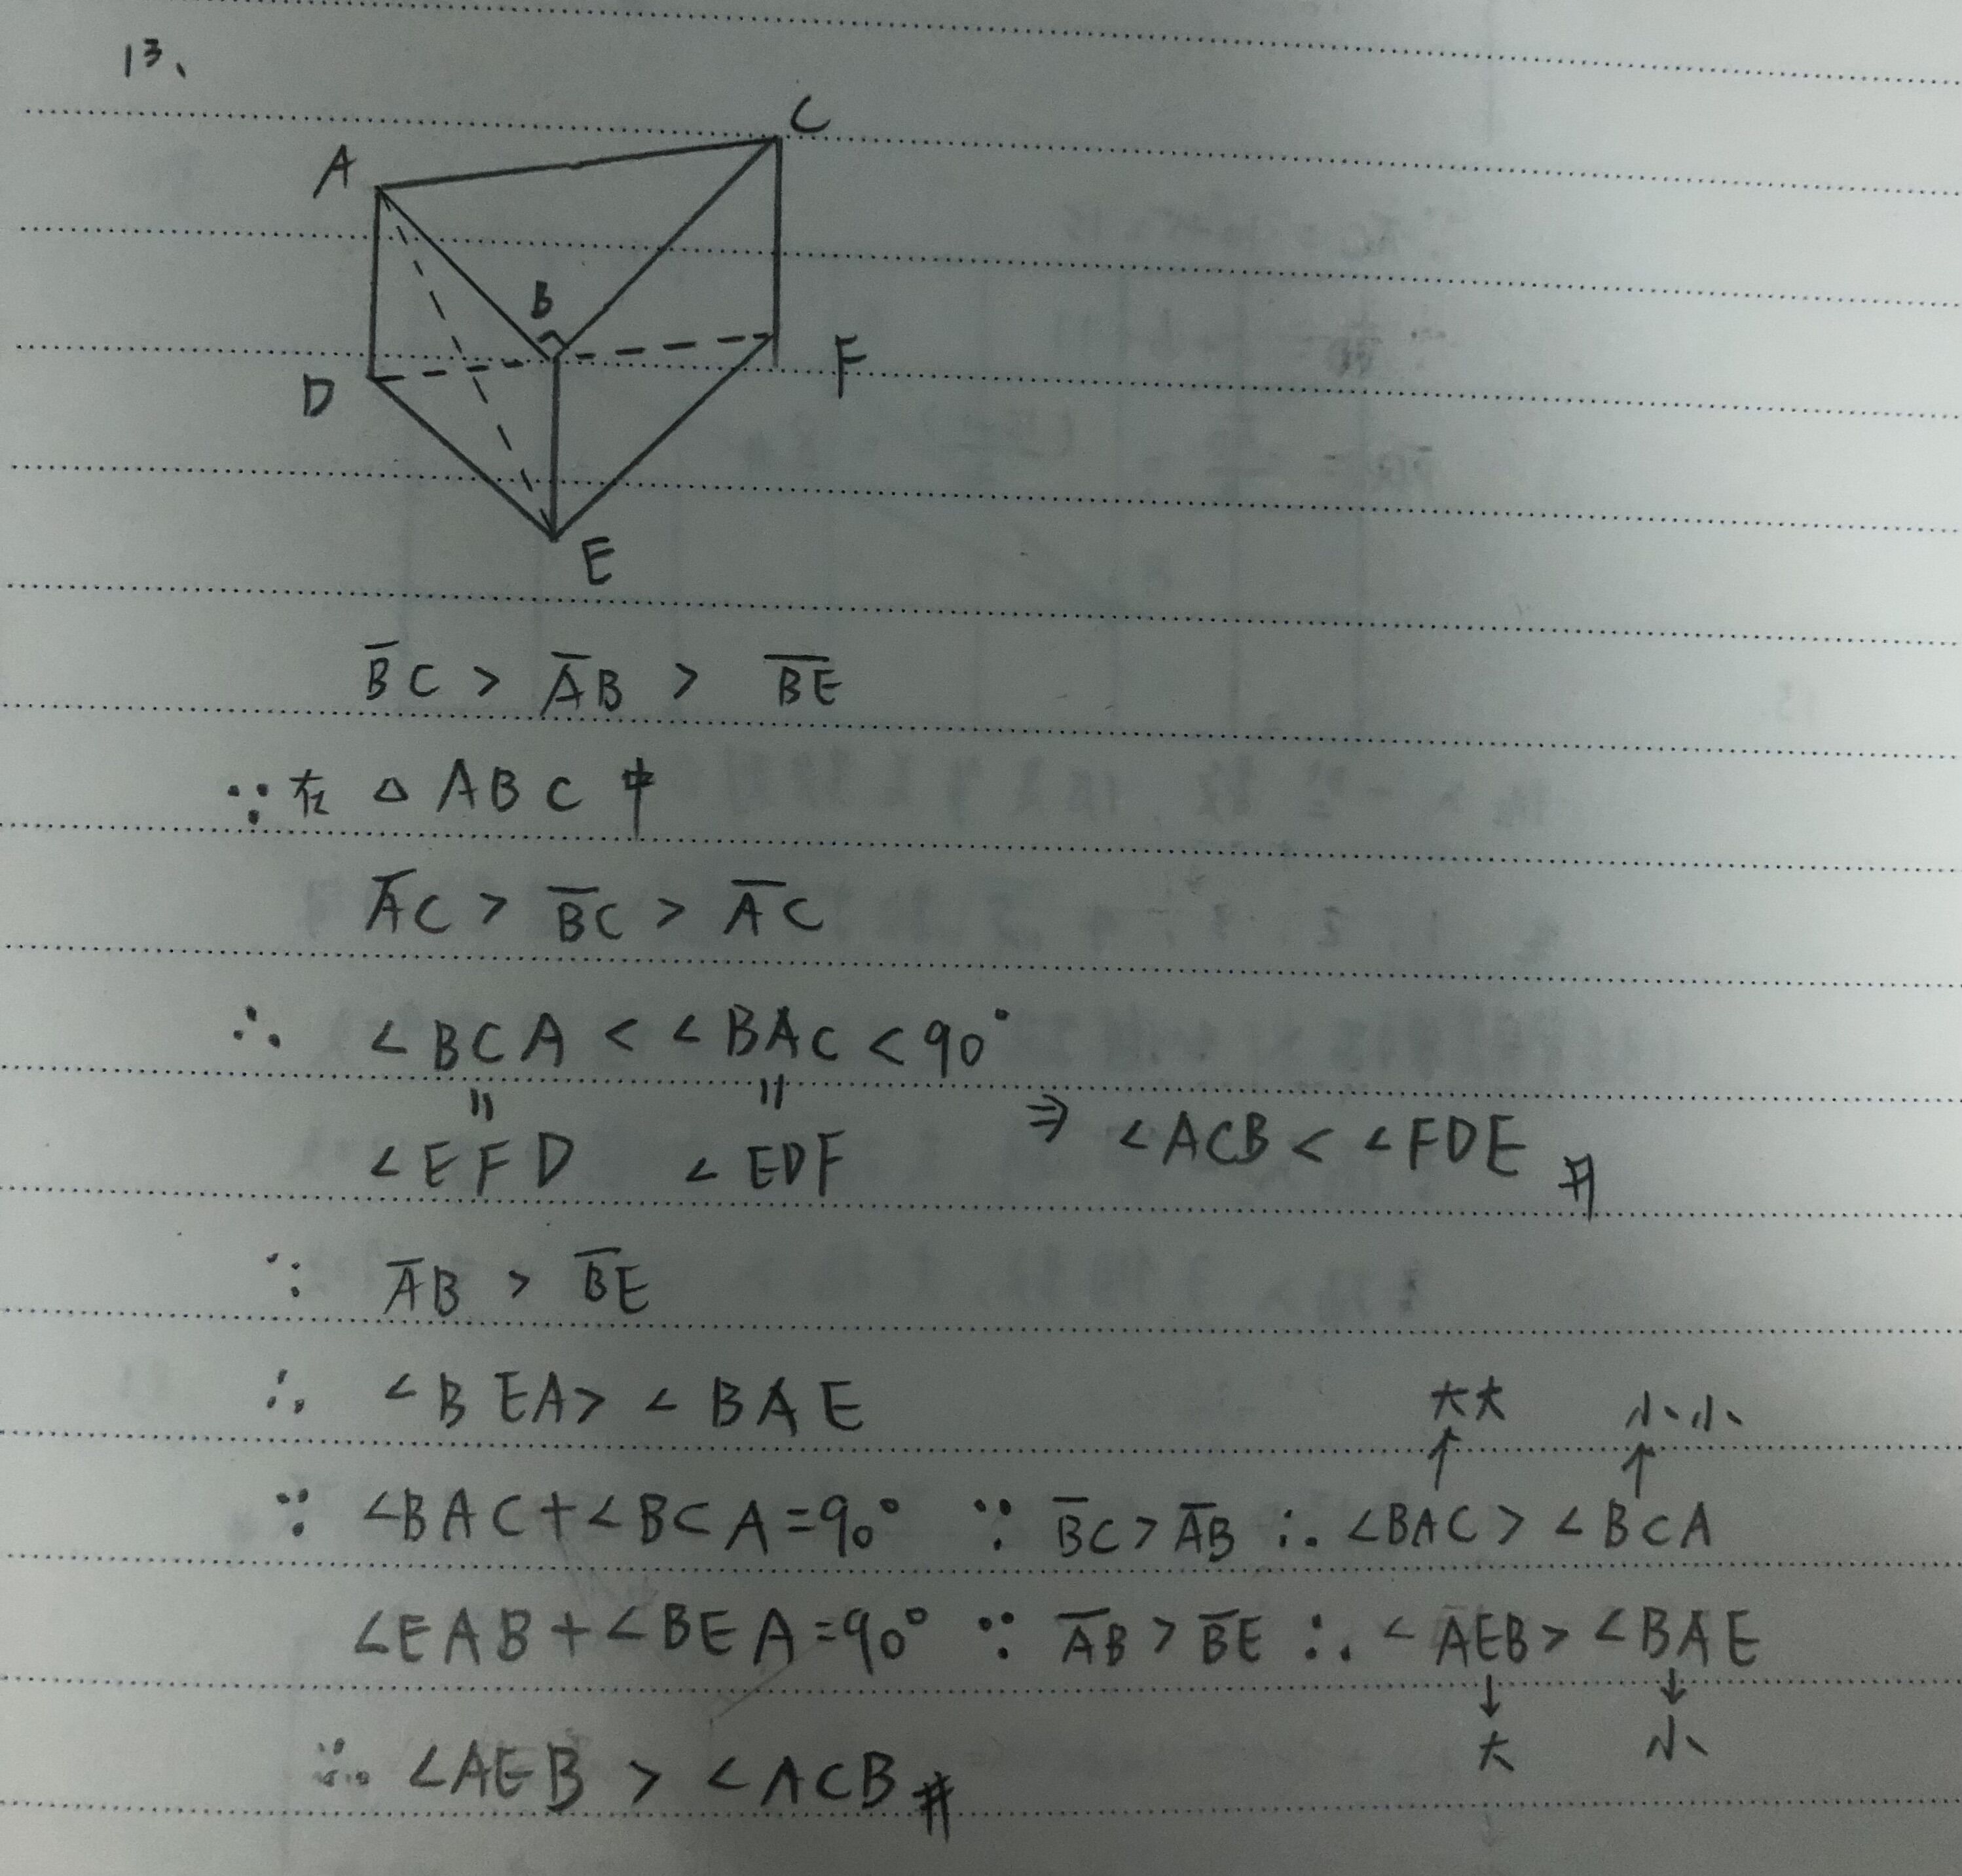 13、
C
A
B
D
F
E
B̅C > A̅B > B̅E̅
∵ 在 △ABC 中
A̅C > B̅C > A̅C
∴ ∠BCA < ∠BAC < 90°
= =
∠EFD ∠EDF ⇒ ∠ACB < ∠FDE #
∵ A̅B > B̅E
∴ ∠BEA > ∠BAE
大大 小小
↑ ↑
∵ ∠BAC + ∠BCA = 90° ∵ B̅C > A̅B ∴ ∠BAC > ∠BCA
∠EAB + ∠BEA = 90° ∵ A̅B > B̅E ∴ ∠AEB > ∠BAE
↓ ↓
大 小
∴ ∠AEB > ∠ACB #